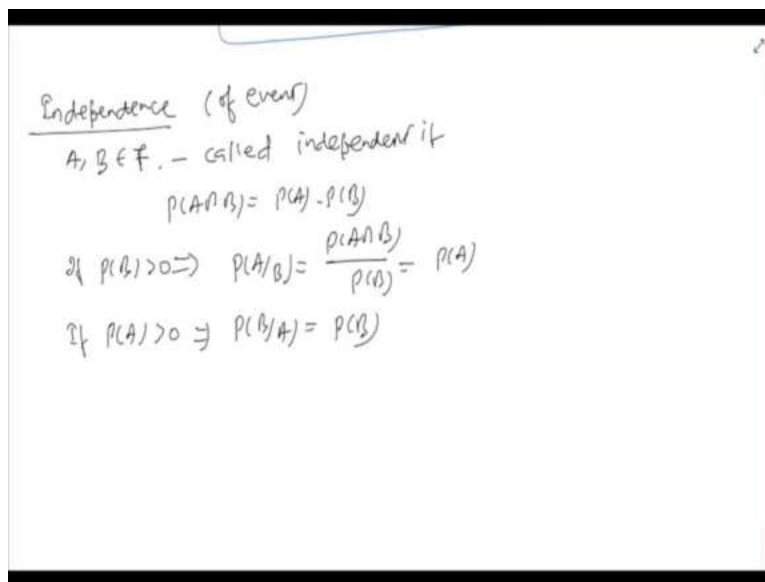 Independence (of event)
A, B ∈ F. - called independent if
P(A∩B) = P(A) . P(B)
If P(B) > 0 ⇒ P(A/B) = P(A∩B) / P(B) = P(A)
If P(A) > 0 ⇒ P(B/A) = P(B)